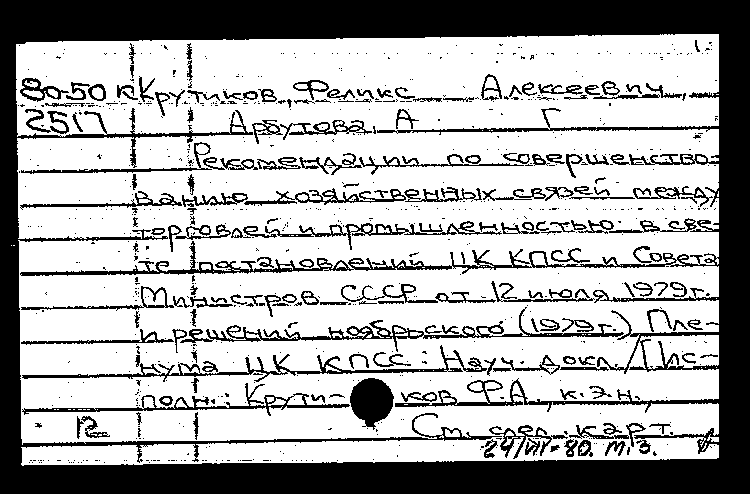 80-50 к Крутиков, Феликс Алексеевич,
2517 Арбутова, А Г
Рекомендации по совершенство-
ванию хозяйственных связей между
торговлей и промышленностью в све-
те постановлений ЦК КПСС и Совета
Министров СССР от 12 июля 1979г.
и решений ноябрьского (1979г.) Пле-
нума ЦК КПСС: Науч. докл. /Ис-
полн.: Крути- ков Ф.А., к.э.н.,
12 См. след. карт.
24/VII-80. т.з.